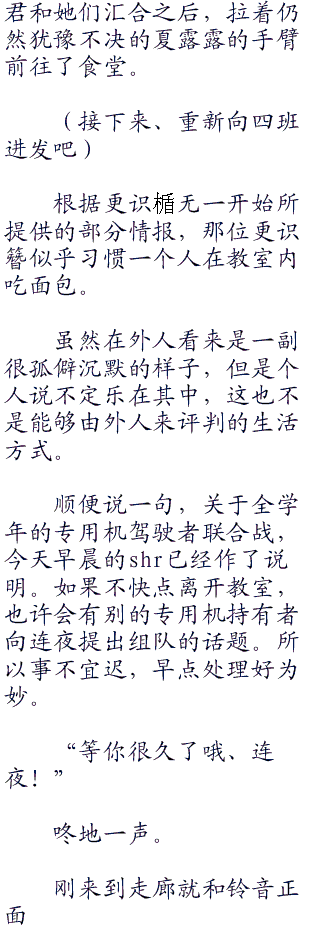 君和她们汇合之后，拉着仍
然犹豫不决的夏露露的手臂
前往了食堂。
（接下来、重新向四班
进发吧）
根据更识楯无一开始所
提供的部分情报，那位更识
簪似乎习惯一个人在教室内
吃面包。
虽然在外人看来是一副
很孤僻沉默的样子，但是个
人说不定乐在其中，这也不
是能够由外人来评判的生活
方式。
顺便说一句，关于全学
年的专用机驾驶者联合战，
今天早晨的shr已经作了说
明。如果不快点离开教室，
也许会有别的专用机持有者
向连夜提出组队的话题。所
以事不宜迟，早点处理好为
妙。
“等你很久了哦、连
夜！”
咚地一声。
刚来到走廊就和铃音正
面